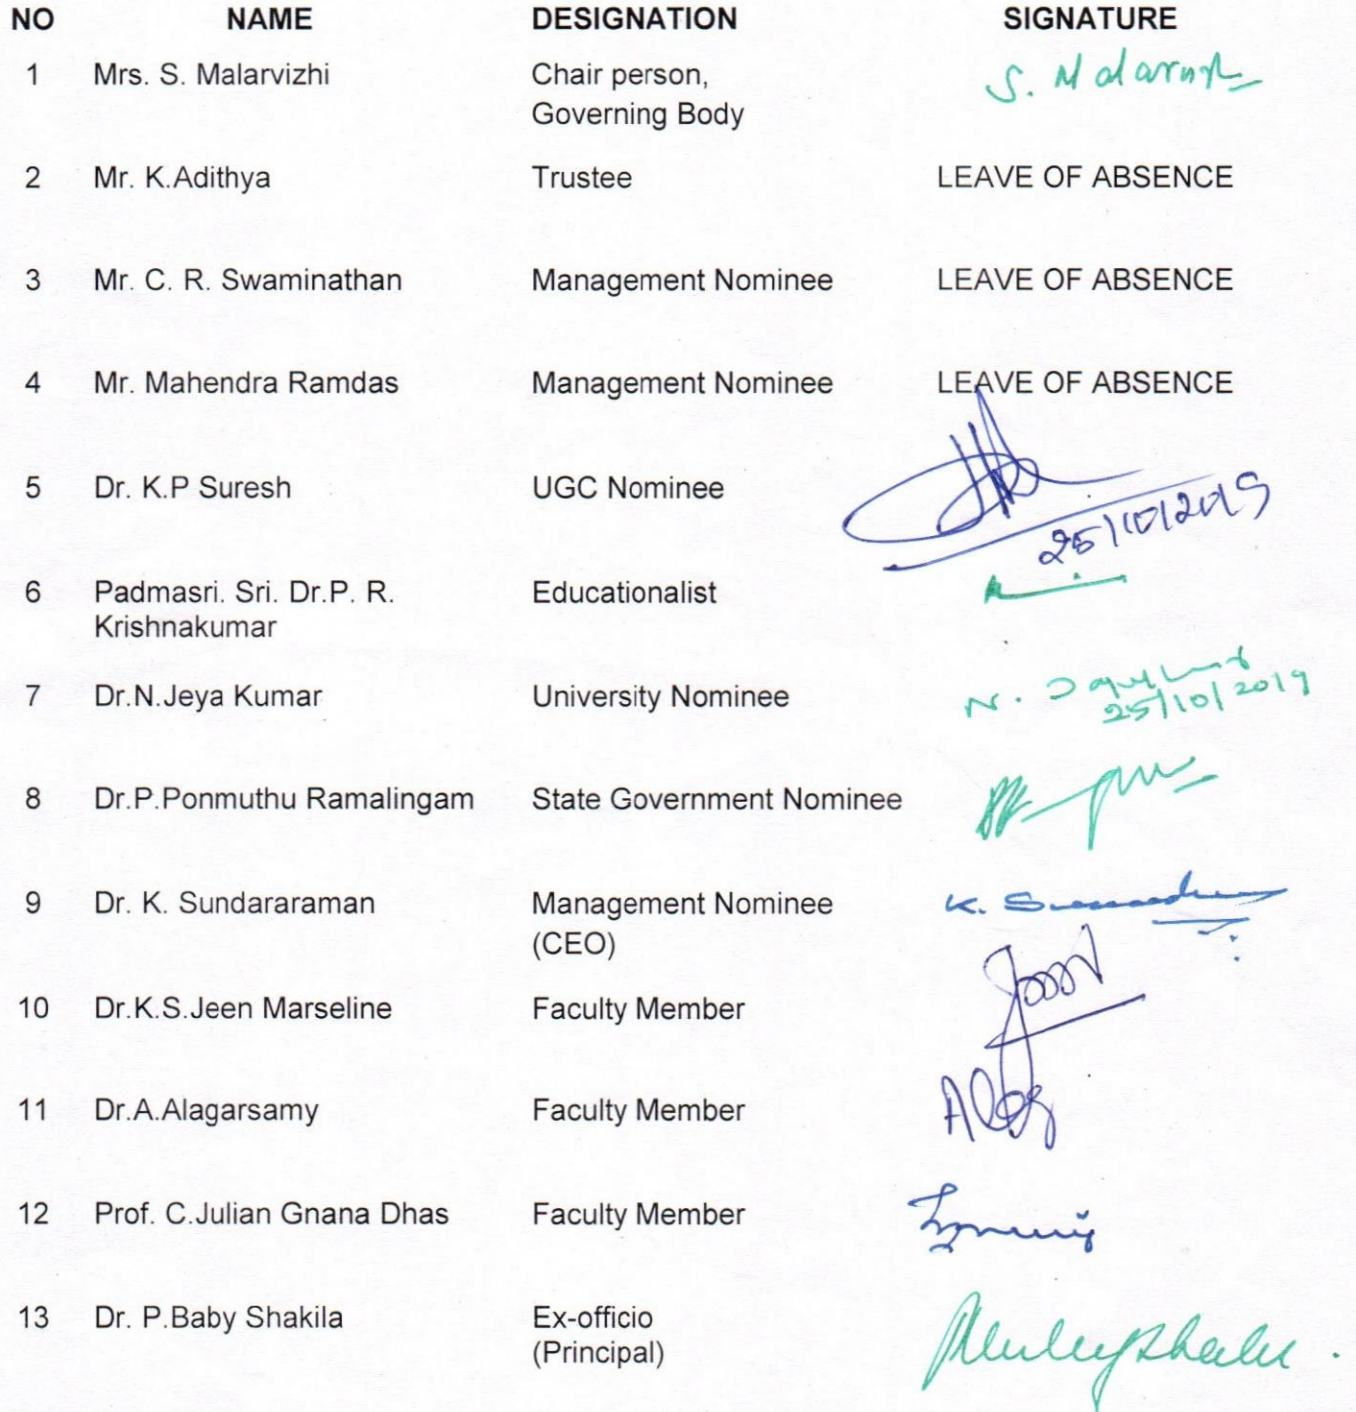 NO NAME DESIGNATION SIGNATURE
1 Mrs. S. Malarvizhi Chair person, S. Malarvizhi
Governing Body
2 Mr. K.Adithya Trustee LEAVE OF ABSENCE
3 Mr. C. R. Swaminathan Management Nominee LEAVE OF ABSENCE
4 Mr. Mahendra Ramdas Management Nominee LEAVE OF ABSENCE
5 Dr. K.P Suresh UGC Nominee
25/10/2019
6 Padmasri. Sri. Dr.P. R. Educationalist
Krishnakumar
7 Dr.N.Jeya Kumar University Nominee N.
25/10/2019
8 Dr.P.Ponmuthu Ramalingam State Government Nominee
9 Dr. K. Sundararaman Management Nominee K.
(CEO)
10 Dr.K.S.Jeen Marseline Faculty Member
11 Dr.A.Alagarsamy Faculty Member
12 Prof. C.Julian Gnana Dhas Faculty Member
13 Dr. P.Baby Shakila Ex-officio
(Principal)